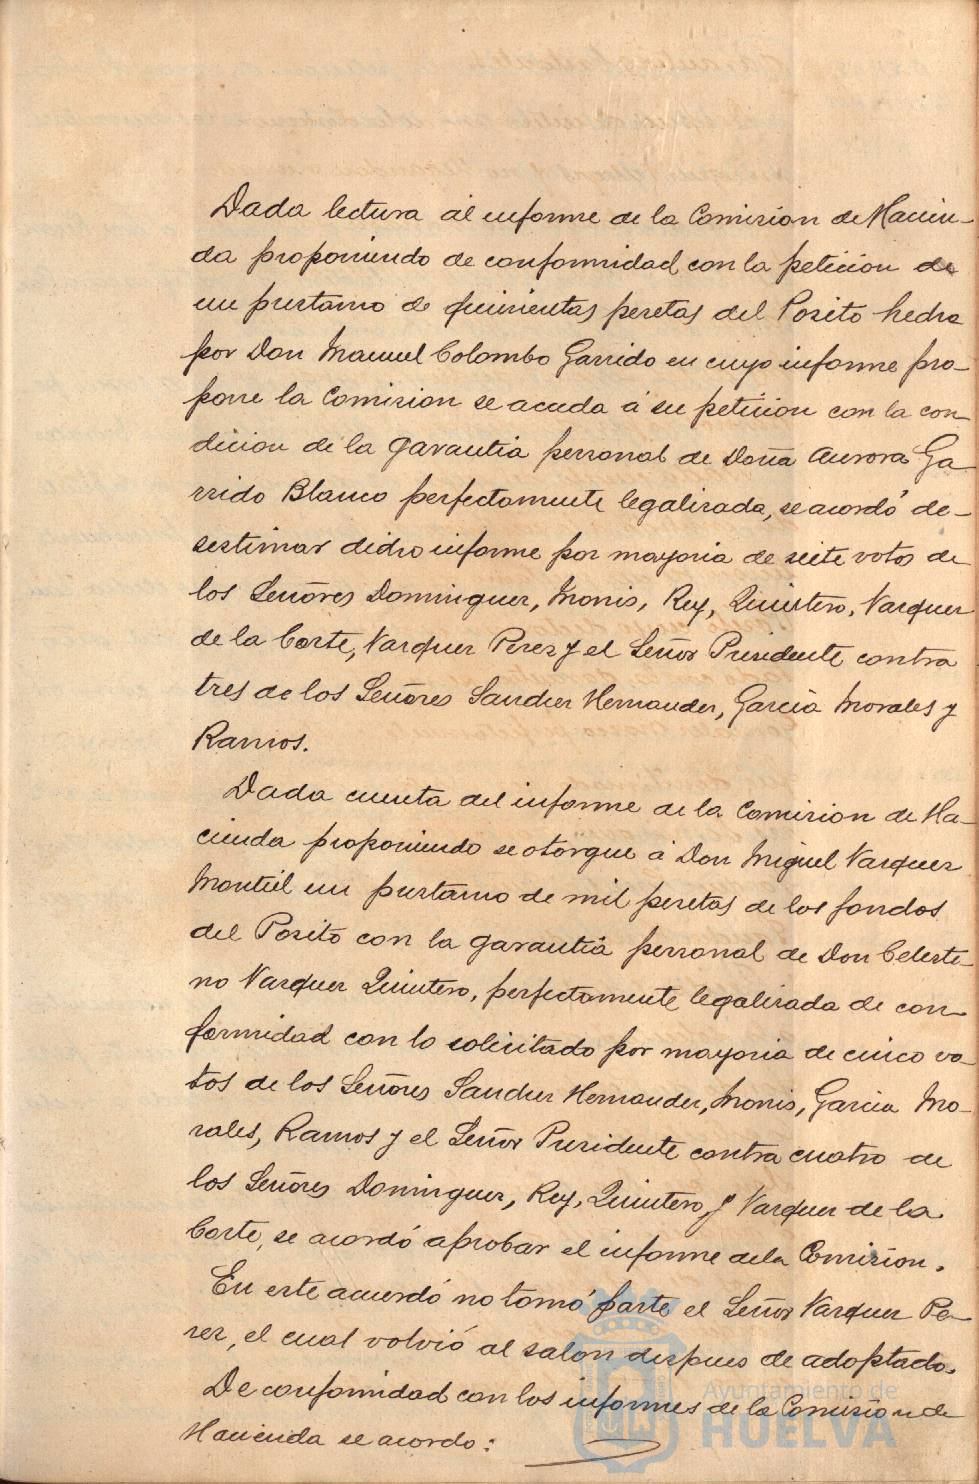 Dada lectura al informe de la Comision de Hacien-
da proponiendo de conformidad con la peticion de
un prestamo de quinientas pesetas del Posito hecha
por Don Manuel Colombo Garrido en cuyo informe pro-
pone la Comision se acceda á su peticion con la con
dicion de la garantia personal de Doña Aurora Ga-
rrido Blanco perfectamente legalizada, se acordó de-
sestimar dicho informe por mayoria de siete votos de
los Señores Dominguez, Monis, Rey, Quintero, Vazquez
de la Corte, Vazquez Perez y el Señor Presidente contra
tres de los Señores Sanchez Hernandez, Garcia Morales y
Ramos.
Dada cuenta del informe de la Comision de Ha-
cienda proponiendo se otorgue á Don Miguel Vazquez
Montiel un prestamo de mil pesetas de los fondos
del Posito con la garantia personal de Don Celesti-
no Vazquez Quintero, perfectamente legalizada de con-
formidad con lo solicitado por mayoria de cinco vo-
tos de los Señores Sanchez Hernandez, Monis, Garcia Mo-
rales, Ramos y el Señor Presidente contra cuatro de
los Señores Dominguez, Rey, Quintero y Vazquez de la
Corte, se acordó aprobar el informe de la Comision.
En este acuerdo no tomó parte el Señor Vazquez Pe-
rez, el cual volvió al salon despues de adoptado.
De conformidad con los informes de la Comision de
Hacienda se acordo:
Ayuntamiento de
HUELVA